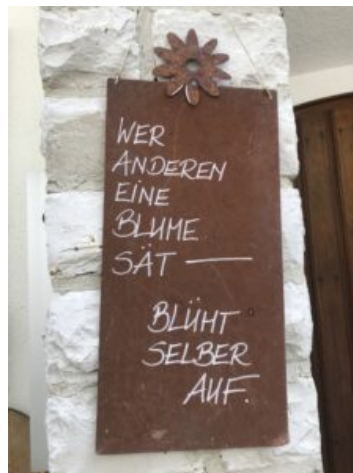 WER
ANDEREN
EINE
BLUME
SÄT —
BLÜHT
SELBER
AUF.